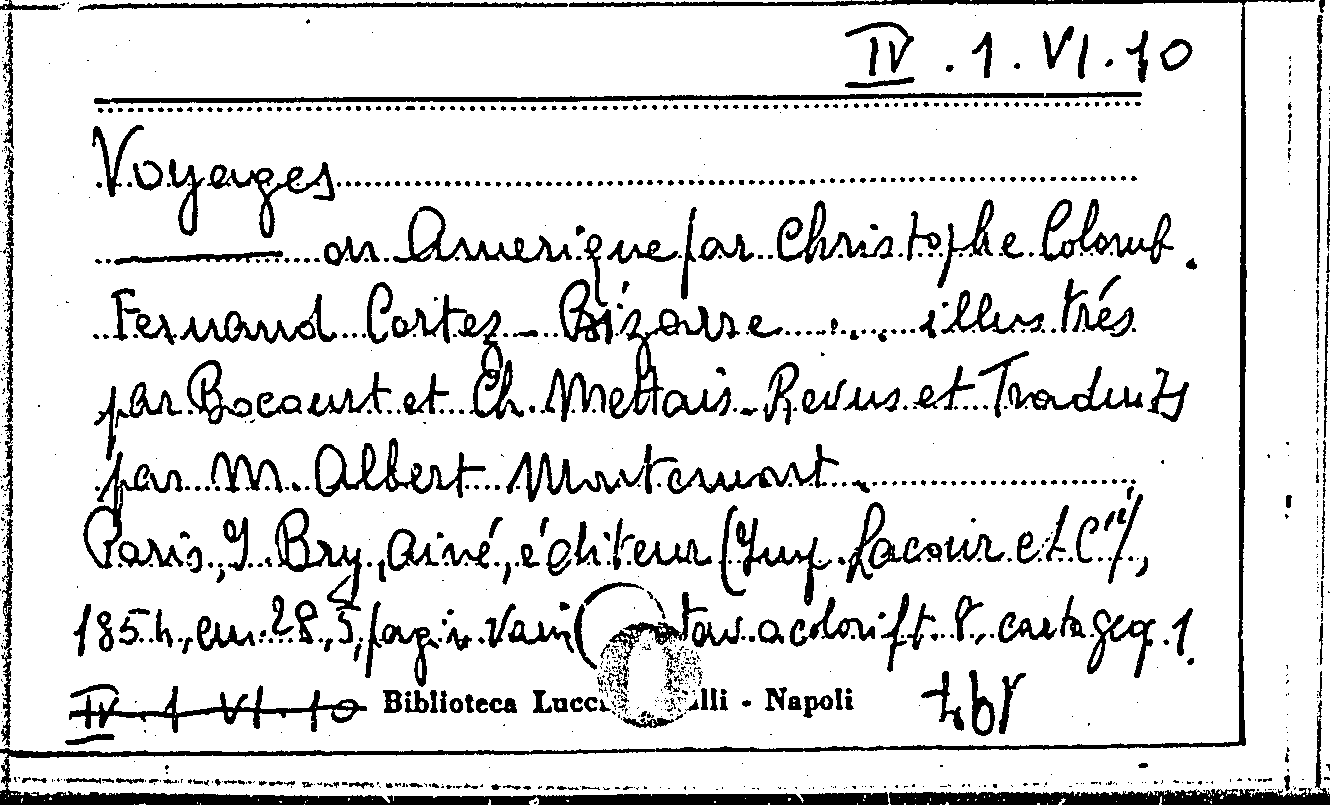 IV . 1 . VI . 10
Voyages
en Amerique par Christophe Colomb.
Fernand Cortez - Bizarre ..... illustrés
par Bocourt et Ch. Mettais - Revus et Traduits
par M. Albert Montemont.
Paris, J. Bry, Ainé, éditeur (Imp. Lacour et Cie),
1854, cm. 28,5, pagin. Varia tav. a colori f.t. 8, carta geog. 1.
IV . 1 VI . 10 Biblioteca Lucc lli - Napoli